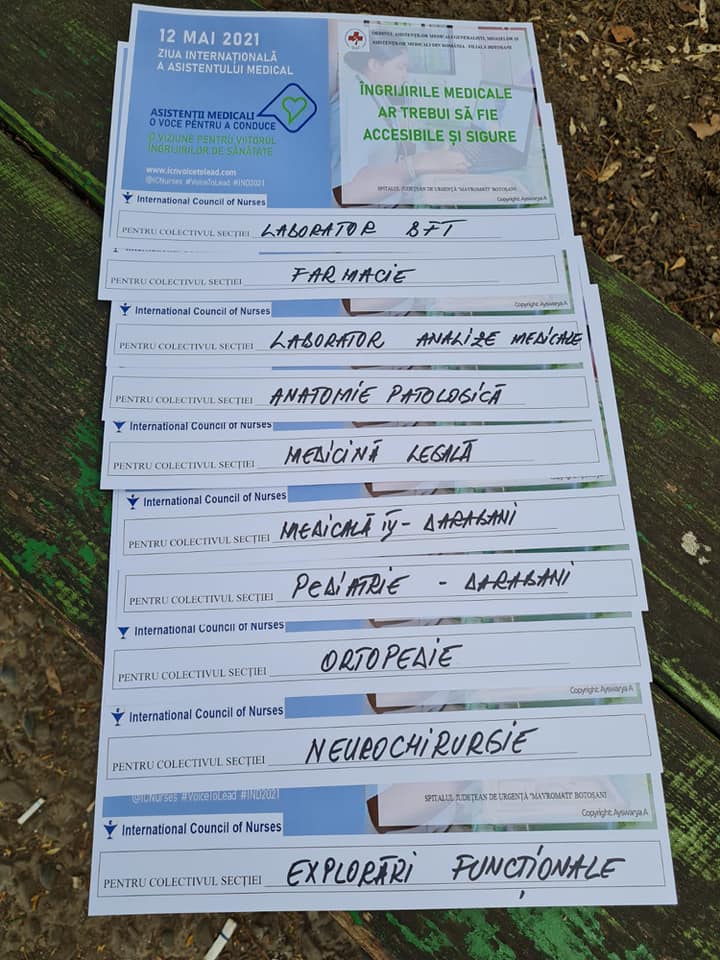 12 MAI 2021
ZIUA INTERNAȚIONALĂ
A ASISTENTULUI MEDICAL
ASISTENȚII MEDICALI
O VOCE PENTRU A CONDUCE
O VIZIUNE PENTRU VIITORUL
ÎNGRIJIRILOR DE SĂNĂTATE
www.icnvoicetolead.com
@ICNurses #VoiceToLead #IND2021
ORDINUL ASISTENȚILOR MEDICALI GENERALIȘTI, MOAȘELOR ȘI
ASISTENȚILOR MEDICALI DIN ROMÂNIA FILIALA BOTOȘANI
ÎNGRIJIRILE MEDICALE
AR TREBUI SĂ FIE
ACCESIBILE ȘI SIGURE
SPITALUL JUDEȚEAN DE URGENȚĂ "MAVROMATI" BOTOȘANI
Copyright: Ayswarya A
International Council of Nurses
PENTRU COLECTIVUL SECȚIEI LABORATOR BFT
PENTRU COLECTIVUL SECȚIEI FARMACIE
Copyright: Ayswarya A
International Council of Nurses
PENTRU COLECTIVUL SECȚIEI LABORATOR ANALIZE MEDICALE
PENTRU COLECTIVUL SECȚIEI ANATOMIE PATOLOGICĂ
International Council of Nurses
PENTRU COLECTIVUL SECȚIEI MEDICINĂ LEGALĂ
International Council of Nurses
PENTRU COLECTIVUL SECȚIEI MEDICALĂ IV - DARABANI
PENTRU COLECTIVUL SECȚIEI PEDIATRIE - DARABANI
International Council of Nurses
PENTRU COLECTIVUL SECȚIEI ORTOPEDIE
Copyright: Ayswarya A
International Council of Nurses
PENTRU COLECTIVUL SECȚIEI NEUROCHIRURGIE
@ICNurses #VoiceToLead #IND2021
SPITALUL JUDEȚEAN DE URGENȚĂ "MAVROMATI" BOTOȘANI
Copyright: Ayswarya A
International Council of Nurses
PENTRU COLECTIVUL SECȚIEI EXPLORĂRI FUNCȚIONALE